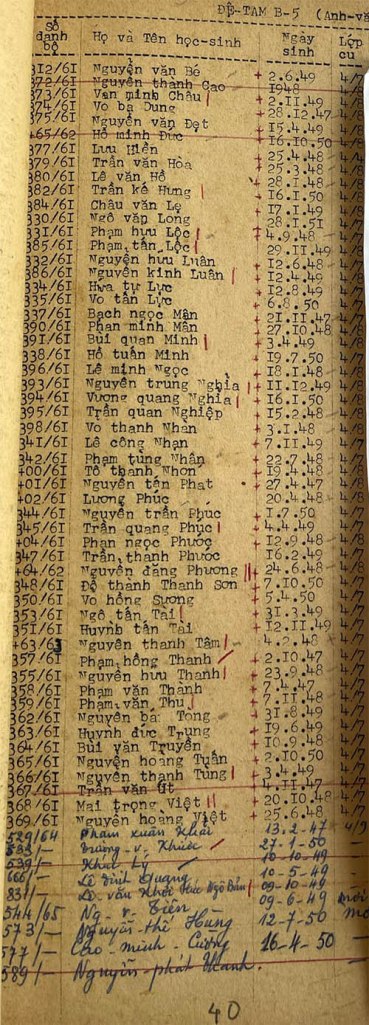 ĐỆ-TAM B-5 (Anh-vă
Số danh bộ Họ và Tên học-sinh Ngày sinh Lớp cũ
312/61 Nguyễn văn Bé + 2.6.49 4/7
372/61 Nguyễn thành Cao 1948 4/8
373/61 Văn minh Châu + 2.11.49 4/7
374/61 Võ bá Dung + 28.12.47 4/8
375/61 Nguyễn văn Đẹt + 15.4.49 4/8
465/62 Hồ minh Đức + 16.10.50 4/8
377/61 Lưu Hiền + 25.4.48 4/8
379/61 Trần văn Hòa + 25.3.48 4/8
380/61 Lê văn Hồ + 28.1.48 4/8
382/61 Trần kế Hưng + 16.1.50 4/8
384/61 Châu văn Lẹ + 17.1.49 4/8
330/61 Ngô văn Long + 28.1.51 4/7
331/61 Phạm hữu Lộc + 4.9.48 4/7
385/61 Phạm tấn Lộc 29.11.49 4/8
332/61 Nguyễn hữu Luân + 12.6.48 4/7
386/61 Nguyễn kinh Luân + 12.4.49 4/8
334/61 Hứa tự Lực + 12.8.49 4/7
335/61 Võ tấn Lực 6.8.50 4/7
337/61 Bạch ngọc Mân + 21.11.47 4/7
390/61 Phan minh Mân + 27.10.48 4/8
391/61 Bùi quan Minh + 3.4.49 4/8
338/61 Hồ tuấn Minh + 19.7.50 4/7
396/61 Lê minh Ngọc + 18.1.48 4/8
393/61 Nguyễn trung Nghĩa + 11.12.49 4/8
394/61 Vương quang Nghĩa + 16.1.50 4/8
395/61 Trần quan Nghiệp + 15.2.48 4/8
398/61 Võ thành Nhàn + 3.1.48 4/8
341/61 Lê công Nhạn + 7.11.49 4/7
342/61 Phạm tùng Nhân + 22.7.48 4/7
400/61 Tô thành Nhơn + 19.4.48 4/8
401/61 Nguyễn tấn Phát + 27.4.47 4/8
402/61 Lương Phúc + 20.4.48 4/8
344/61 Nguyễn trần Phúc + 1.7.50 4/7
345/61 Trần quang Phục + 4.4.49 4/7
404/61 Phan ngọc Phước + 12.9.48 4/8
347/61 Trần thanh Phước + 16.2.49 4/7
464/62 Nguyễn đăng Phương + 24.6.48 4/8
348/61 Đỗ thành Thanh Sơn + 7.10.50 4/7
350/61 Võ hồng Sương + 5.4.50 4/7
353/61 Ngô tấn Tài + 31.3.49 4/7
351/61 Huỳnh tấn Tài + 12.11.49 4/7
463/63 Nguyễn thành Tâm 4.2.48 4/7
357/61 Phạm hồng Thanh + 2.10.47 4/7
355/61 Nguyễn hữu Thanh + 23.9.48 4/7
358/61 Phạm văn Thành + 7.4.47 4/7
359/61 Phạm văn Thu + 7.11.48 4/7
362/61 Nguyễn bá Tòng + 31.8.49 4/7
363/61 Huỳnh đức Trung + 19.6.49 4/7
364/61 Bùi văn Truyền + 10.9.48 4/7
365/61 Nguyễn hoàng Tuấn + 2.10.50 4/7
366/61 Nguyễn thanh Tùng + 3.4.49 4/7
367/61 Trần văn Út 4.11.47 4/7
368/61 Mai trọng Việt + 20.10.48 4/7
369/61 Nguyễn hoàng Việt + 25.6.48 4/7
529/64 Phạm xuân Khải 13-2-47 4/9
533/- Trương-v. Khuôi 27-1-50 -
539/- Khưu Lý 10-10-49
666/- Lê đình Quang 10-5-49 -
831/- 09-10-49
544/65 Ng-v. Tiên 09-6-49 mới
573/- Nguyễn-thế Hùng 12-7-50 mớ
577/- Cao-minh-Cường 16-4-50 -
589/- Nguyễn-phát Thanh.
40